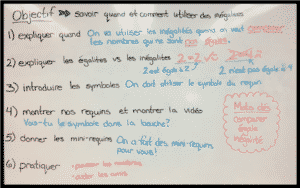 Objectif ⇒ savoir quand et comment utiliser des inégalités
1) expliquer quand On va utiliser les inégalités quand on veut comparer
les nombres qui ne sont pas égales.
2) expliquer les égalités vs les inégalités 2=2 ✓
2 est égale à 2 2 n'est pas égale à
3) introduire les symboles On doit utiliser le symbole du requin
4) montrer nos requins et montrer la vidéo
Vois-tu le symbole dans la bouche?
5) donner les mini-requins On a fait des mini-requins
pour vous!
6) pratiquer
Mots clés
comparer
égale
inégalité